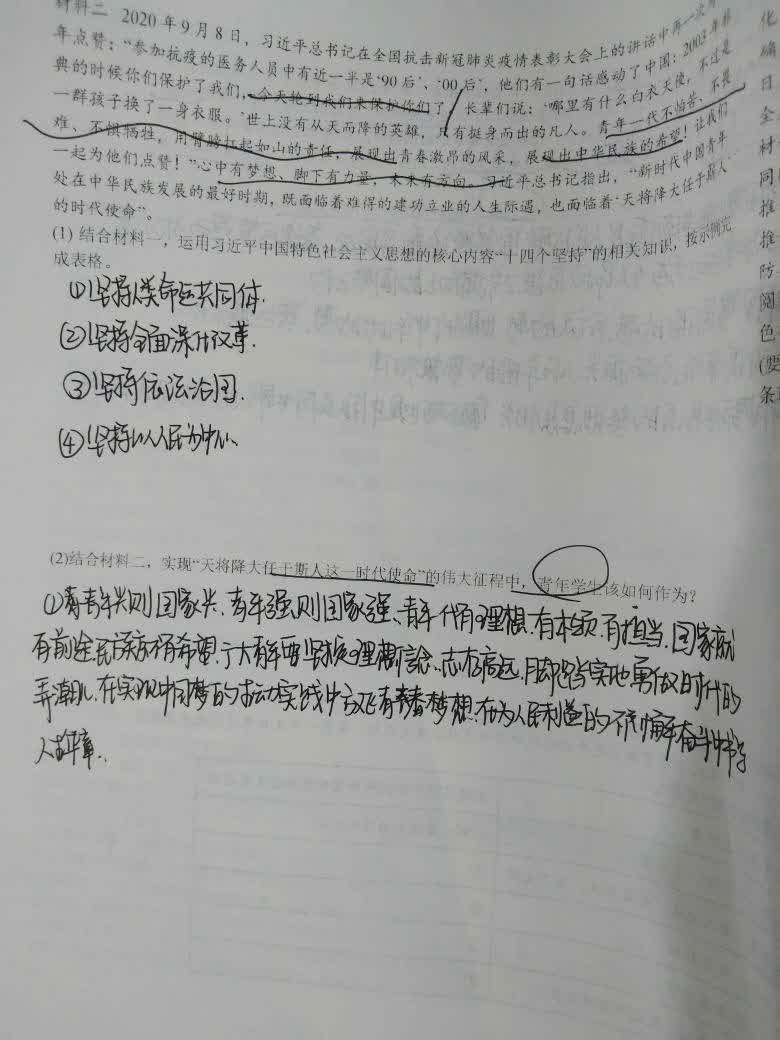 材料二 2020年9月8日，习近平总书记在全国抗击新冠肺炎疫情表彰大会上的讲话中再一次为
年点赞：“参加抗疫的医务人员中有近一半是‘90后’、‘00后’，他们有一句话感动了中国：2003年非
典的时候你们保护了我们，今天轮到我们来保护你们了。长辈们说：‘哪里有什么白衣天使，不过是
一群孩子换了一身衣服。’世上没有从天而降的英雄，只有挺身而出的凡人。青年一代不怕苦、不畏
难、不惧牺牲，用臂膀扛起如山的责任，展现出青春激昂的风采，展现出中华民族的希望！让我们
一起为他们点赞！”心中有梦想、脚下有力量，未来有方向。习近平总书记指出，“新时代中国青年
处在中华民族发展的最好时期，既面临着难得的建功立业的人生际遇，也面临着‘天将降大任于斯人’
的时代使命”。
(1) 结合材料一，运用习近平中国特色社会主义思想的核心内容“十四个坚持”的相关知识，按示例完
成表格。
①坚持人类命运共同体.
②坚持全面深化改革.
③坚持依法治国.
④坚持以人民为中心、
(2)结合材料二，实现“天将降大任于斯人这一时代使命”的伟大征程中，青年学生该如何作为？
①青年兴则国家兴.青年强则国家强、青年一代有理想.有本领.有担当.国家就
有前途.民族就有希望.广大青年要坚持理想信念、志存高远.脚踏实地.勇做时代的
弄潮儿.在实现中国梦的生动实践中放飞青春梦想.在为人民利益的不懈奋斗中书写
人生华章..
化
确
日
全
材
同
推
推
防
阔
色
(要
条